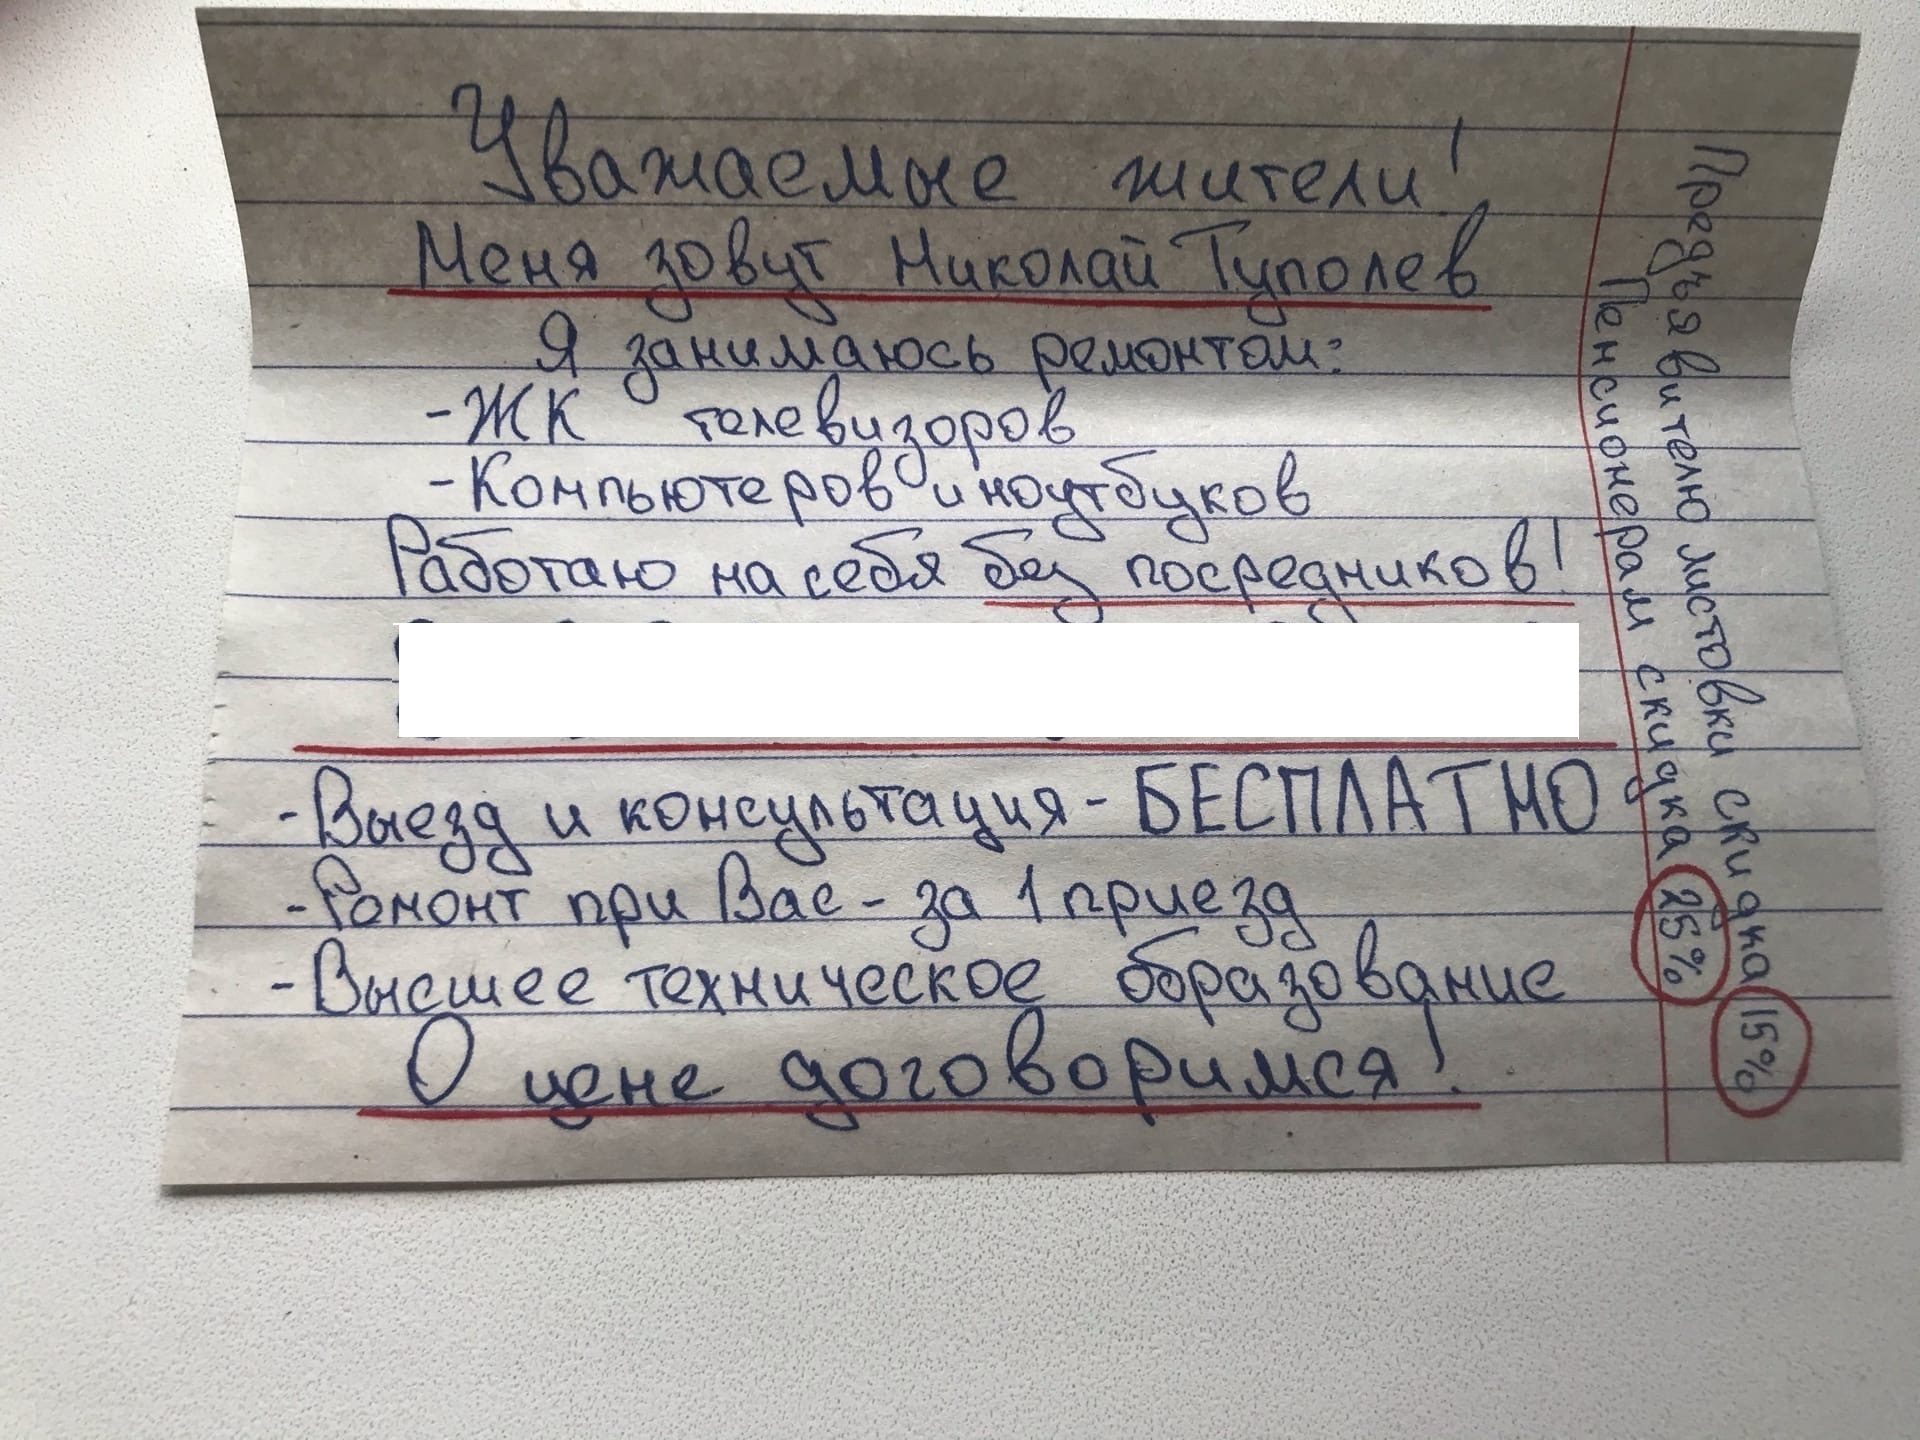 Уважаемые жители!
Меня зовут Николай Туполев
Я занимаюсь ремонтом:
-ЖК телевизоров
-Компьютеров и ноутбуков
Работаю на себя без посредников!
-Выезд и консультация - БЕСПЛАТНО
-Ремонт при Вас - за 1 приезд
-Высшее техническое образование
О цене договоримся!
Предъявителю листовки скидка 15%
Пенсионерам скидка 25%